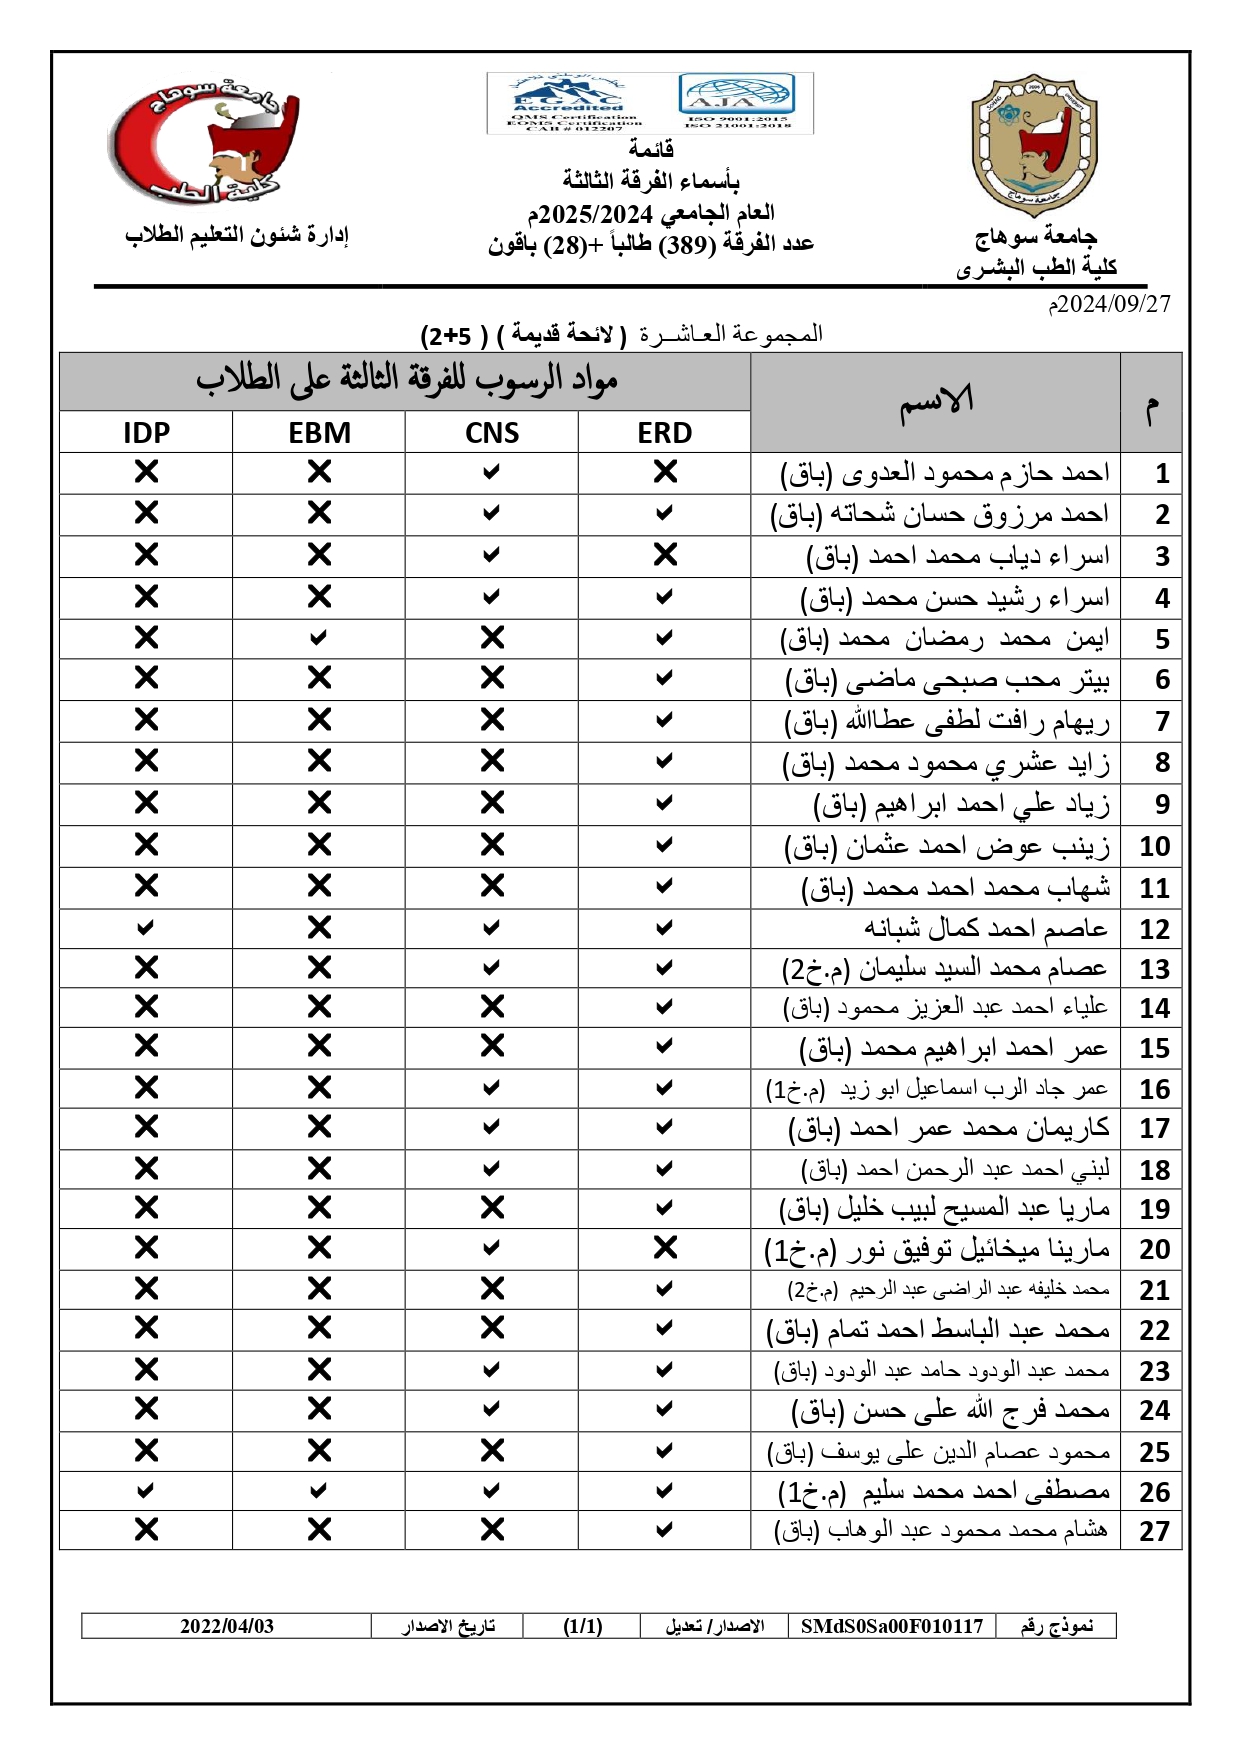 جامعة سوهاج
كلية الطب البشرى
EGAC
Accredited
QMS Certification
EOMS Certification
CAB # 012207
AJA
ISO 9001:2015
ISO 21001:2018
قائمة
بأسماء الفرقة الثالثة
العام الجامعي 2025/2024م
عدد الفرقة (389) طالباً +(28) باقون
جامعة سوهاج
كلية الطب
إدارة شئون التعليم الطلاب
2024/09/27م
المجموعة العاشرة ( لائحة قديمة ) ( 5+2)
م الاسم مواد الرسوب للفرقة الثالثة على الطلاب
ERD CNS EBM IDP
1 احمد حازم محمود العدوى (باق) ❌ ✔ ❌ ❌
2 احمد مرزوق حسان شحاته (باق) ✔ ✔ ❌ ❌
3 اسراء دياب محمد احمد (باق) ❌ ✔ ❌ ❌
4 اسراء رشيد حسن محمد (باق) ✔ ✔ ❌ ❌
5 ايمن محمد رمضان محمد (باق) ✔ ❌ ✔ ❌
6 بيتر محب صبحى ماضى (باق) ✔ ❌ ❌ ❌
7 ريهام رافت لطفى عطاالله (باق) ✔ ❌ ❌ ❌
8 زايد عشري محمود محمد (باق) ✔ ❌ ❌ ❌
9 زياد علي احمد ابراهيم (باق) ✔ ❌ ❌ ❌
10 زينب عوض احمد عثمان (باق) ✔ ❌ ❌ ❌
11 شهاب محمد احمد محمد (باق) ✔ ❌ ❌ ❌
12 عاصم احمد كمال شبانه ✔ ✔ ❌ ✔
13 عصام محمد السيد سليمان (م.خ2) ✔ ✔ ❌ ❌
14 علياء احمد عبد العزيز محمود (باق) ✔ ❌ ❌ ❌
15 عمر احمد ابراهيم محمد (باق) ✔ ❌ ❌ ❌
16 عمر جاد الرب اسماعيل ابو زيد (م.خ1) ✔ ✔ ❌ ❌
17 كاريمان محمد عمر احمد (باق) ✔ ✔ ❌ ❌
18 لبني احمد عبد الرحمن احمد (باق) ✔ ✔ ❌ ❌
19 ماريا عبد المسيح لبيب خليل (باق) ✔ ❌ ❌ ❌
20 مارينا ميخائيل توفيق نور (م.خ1) ❌ ✔ ❌ ❌
21 محمد خليفه عبد الراضى عبد الرحيم (م.خ2) ✔ ❌ ❌ ❌
22 محمد عبد الباسط احمد تمام (باق) ✔ ❌ ❌ ❌
23 محمد عبد الودود حامد عبد الودود (باق) ✔ ✔ ❌ ❌
24 محمد فرج الله على حسن (باق) ✔ ✔ ❌ ❌
25 محمود عصام الدين على يوسف (باق) ✔ ❌ ❌ ❌
26 مصطفى احمد محمد سليم (م.خ1) ✔ ✔ ✔ ✔
27 هشام محمد محمود عبد الوهاب (باق) ✔ ❌ ❌ ❌
نموذج رقم SMdS0Sa00F010117 الاصدار/ تعديل (1/1) تاريخ الاصدار 2022/04/03